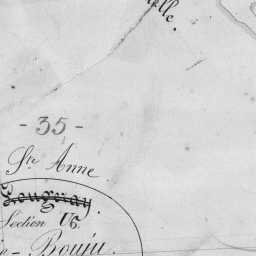 lle.
- 35 -
Ste Anne
Longnay.
Section
Bouju.